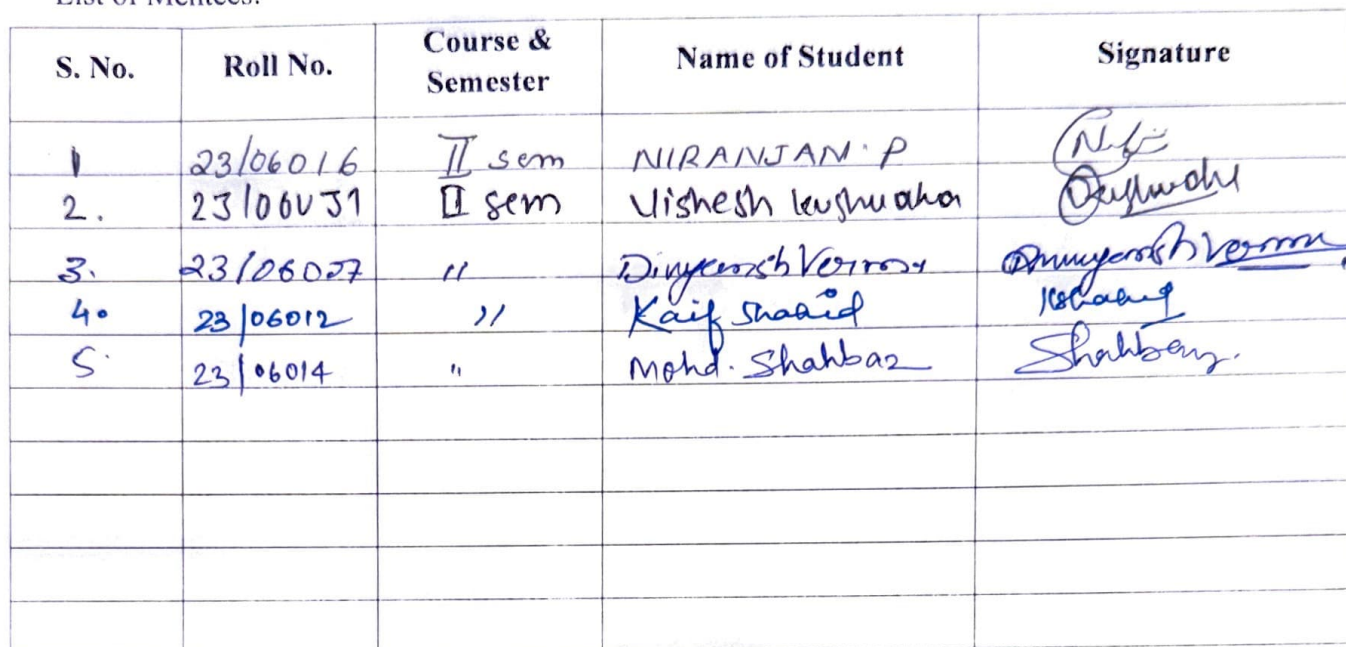 List of Mentees:
S. No. Roll No. Course & Semester Name of Student Signature
1 23/06016 II sem NIRANJAN. P
2. II sem Vishesh kushwaha
3. 23/06007 " Divyansh Verma Divyansh Verma
4. 23/06012 " Kaif Shahid
5. 23/06014 " Mohd. Shahbaz Shahbaz.